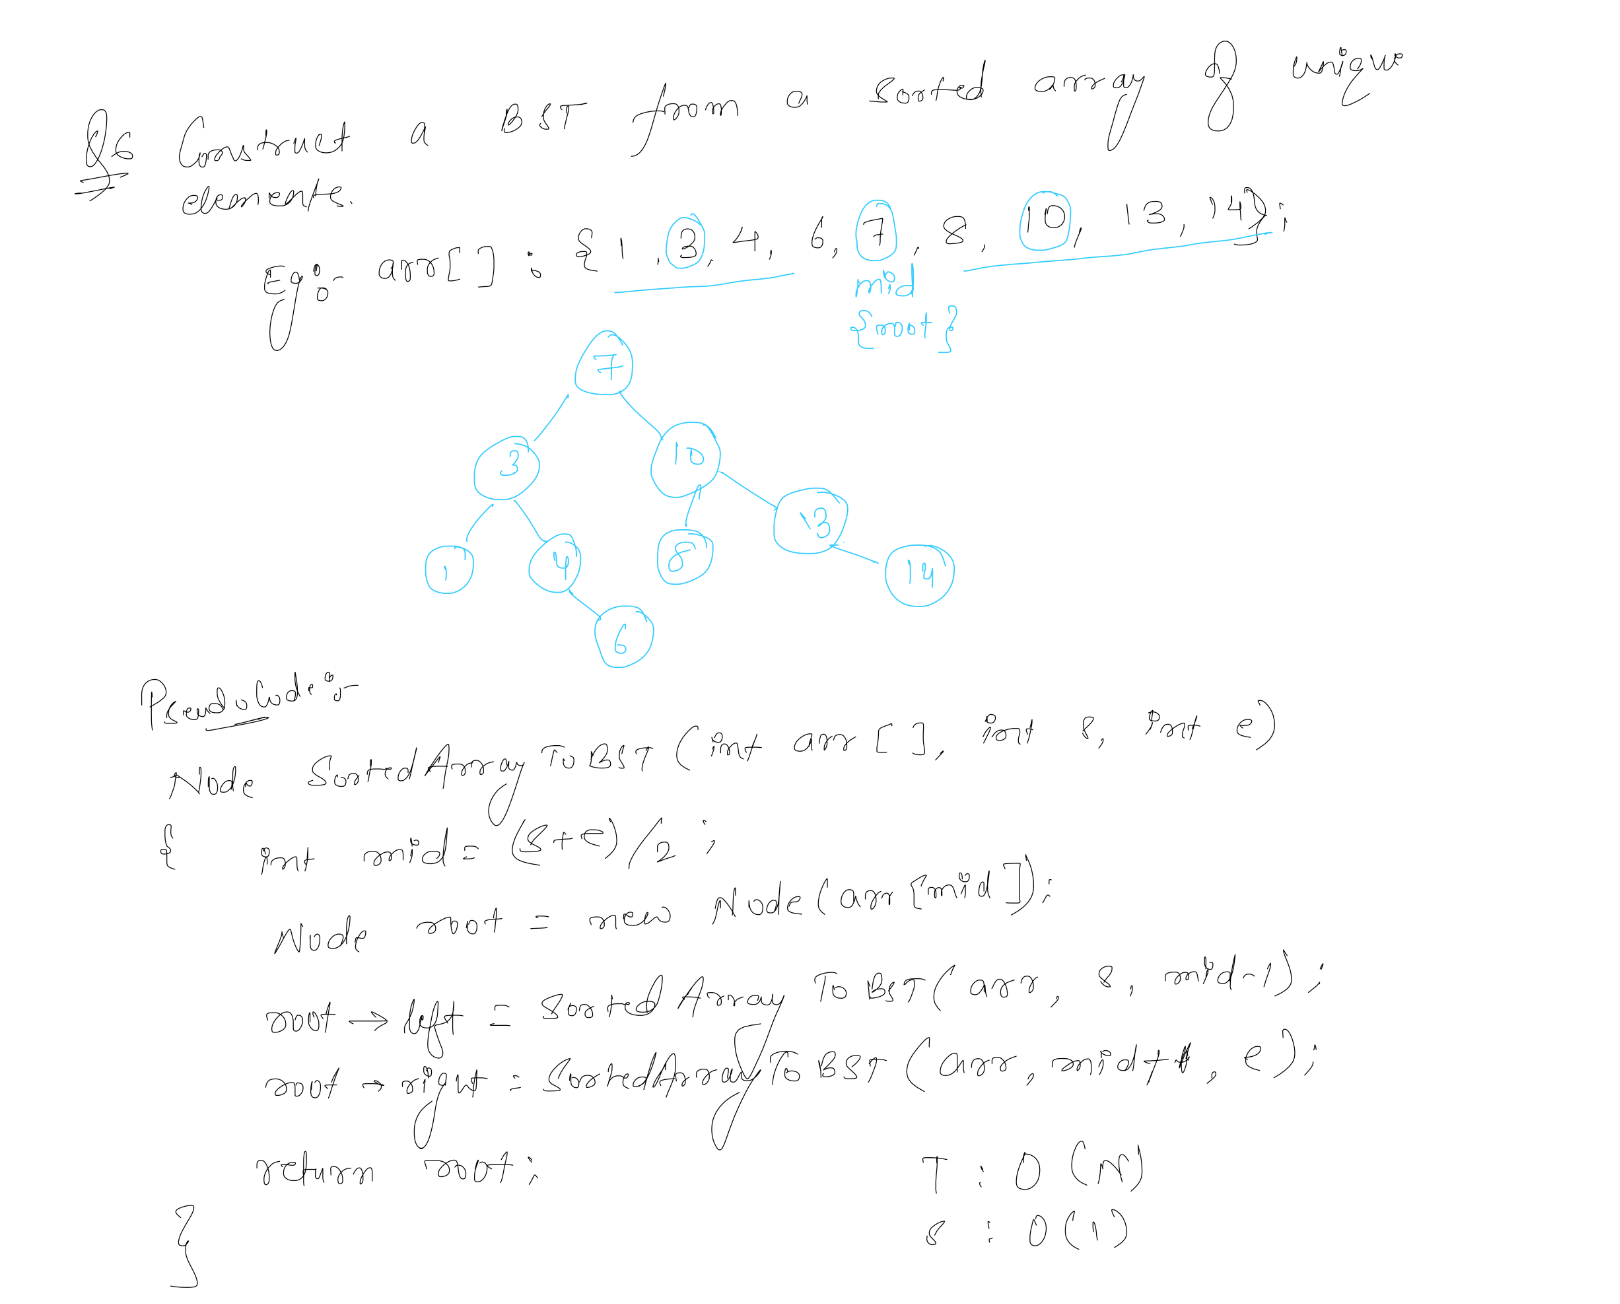 Q6 Construct a BST from a sorted array of unique
elements.
Eg:- arr[] : {1, 3, 4, 6, 7, 8, 10, 13, 14};
mid
{root}
7
3 10
1 4 8 13 14
6
PseudoCode:-
Node SortedArrayToBST(int arr[], int s, int e)
{ int mid = (s+e)/2;
Node root = new Node(arr[mid]);
root → left = SortedArrayToBST(arr, s, mid-1);
root → right = SortedArrayToBST(arr, mid+1, e);
return root;
T : O(N)
S : O(1)
}